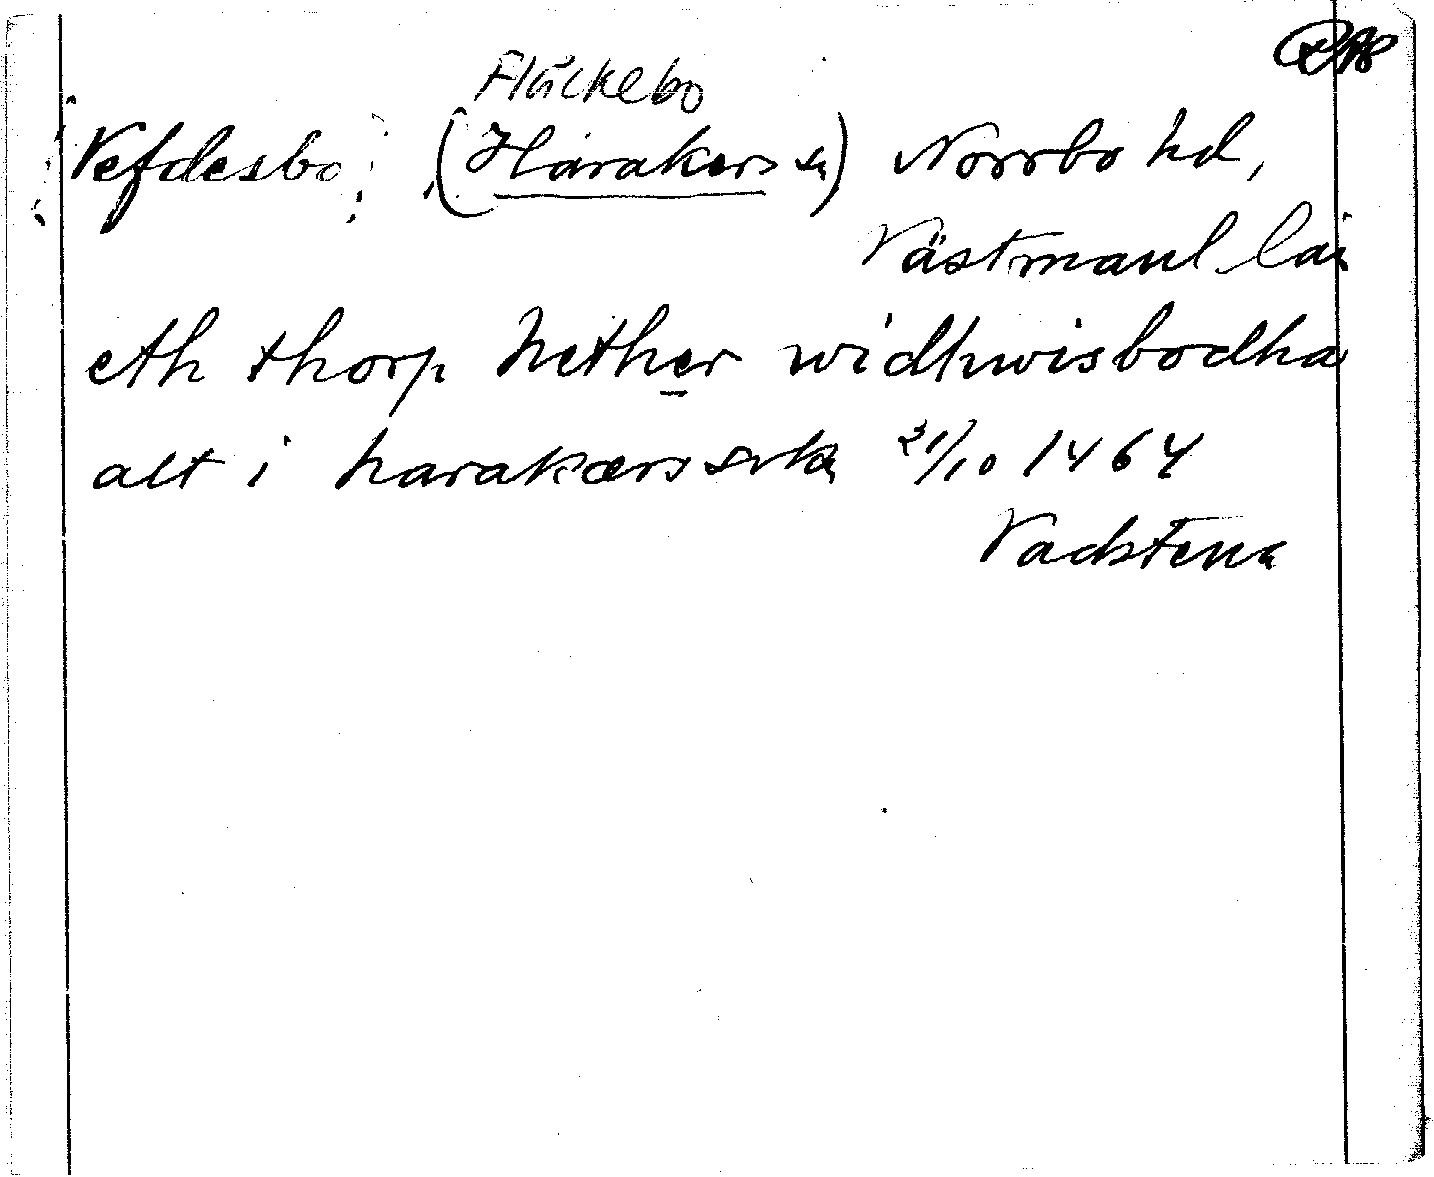 Fläckebo
Vefdesbo, (Harakers sn) Norrbo hd,
Västmanl. län
eth thorp nether widhwisbodha
alt i harakærs sokn 21/10 1464
Vadstena